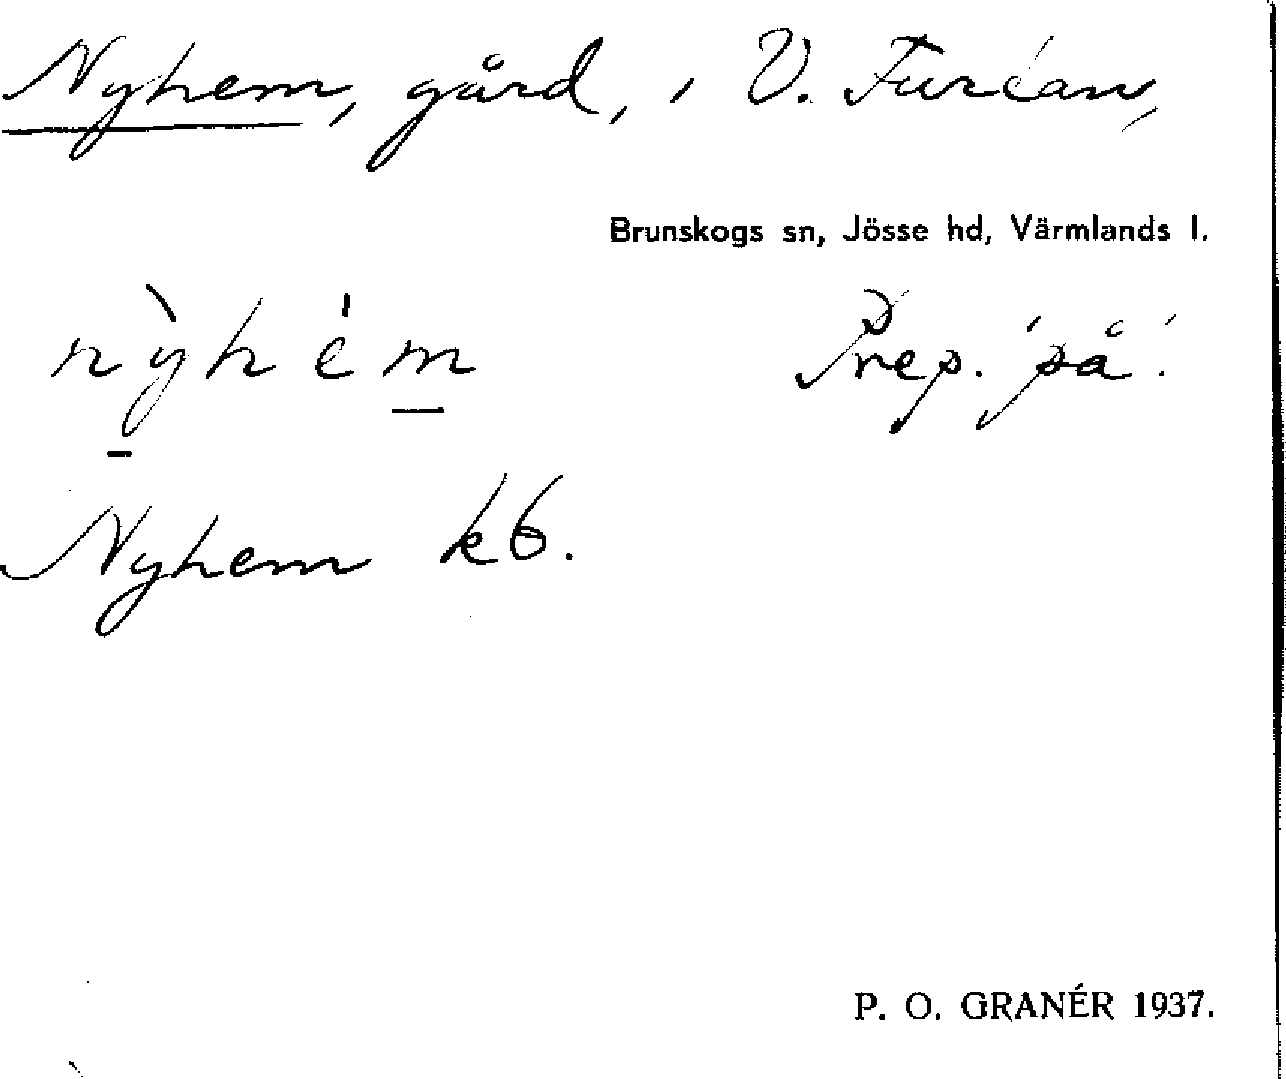 Nyhem, gård, i V. Furtan,
Brunskogs sn, Jösse hd, Värmlands l.
nỳhém Prep. 'på'.
Nyhem kb.
P. O. GRANÉR 1937.